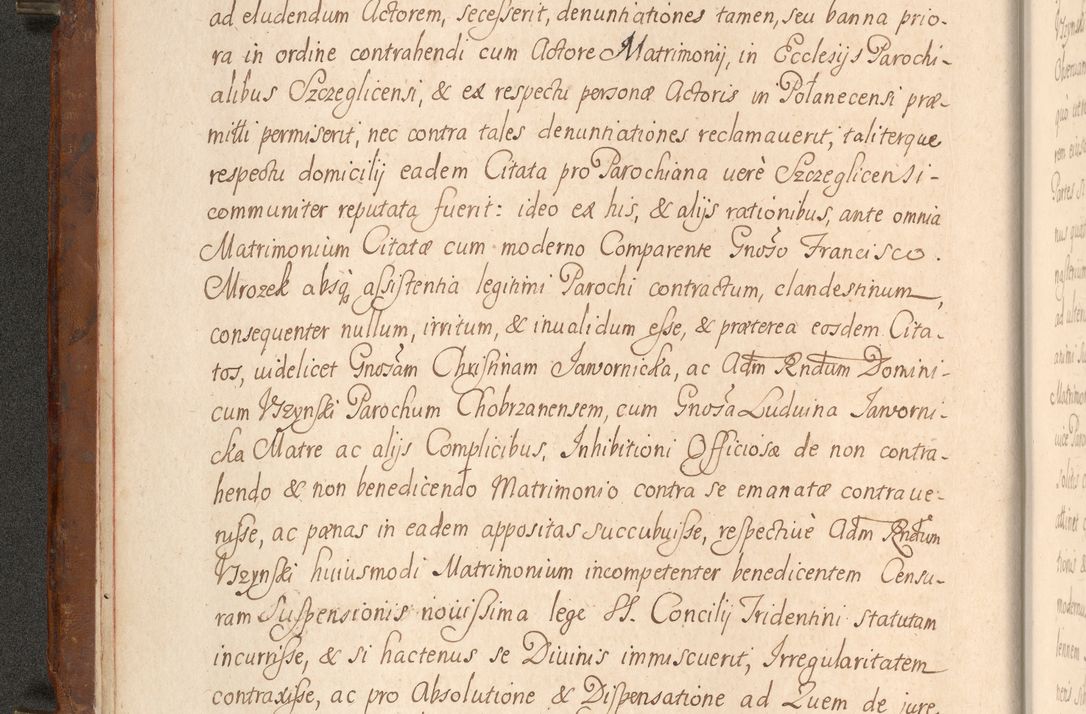 ad eludendum Actorem, secesserit, denuntiationes tamen, seu banna prio-
ra in ordine contrahendi cum Actore Matrimonij, in Ecclesijs Parochi-
alibus Szczeglicensi, & ex respectu personæ Actoris in Połanecensi præ-
mitti permiserit, nec contra tales denuntiationes reclamauerit, taliterque
respectu domicilij eadem Citata pro Parochiana uerè Szczeglicensi-
communiter reputata fuerit: ideo ex his, & alijs rationibus, ante omnia
Matrimonium Citatæ cum moderno Comparente Gnoso Francisco.
Mrozek absq assistentia legitimi Parochi contractum, clandestinum,
consequenter nullum, irritum, & inualidum esse, & præterea eosdem Cita-
tos, uidelicet Gnosam Christinam Jawornicka, ac Adm Rndum Domini-
cum Vszynski Parochum Chobrzanensem, cum Gnosa Luduina Jaworni-
cka Matre ac alijs Complicibus, Inhibitioni Officiosæ de non contra-
hendo & non benedicendo Matrimonio contra se emanatæ contraue-
nisse, ac pænas in eadem appositas succubuisse, respectiuè Adm Rndum
Vszynski huiusmodi Matrimonium incompetenter benedicentem Censu-
ram Suspensionis nouissima lege SS. Concilij Tridentini statutam
incurrisse, & si hactenus se Diuinis immiscuerit, Irregularitatem
contraxisse, ac pro Absolutione & Dispensatione ad Quem de jure.